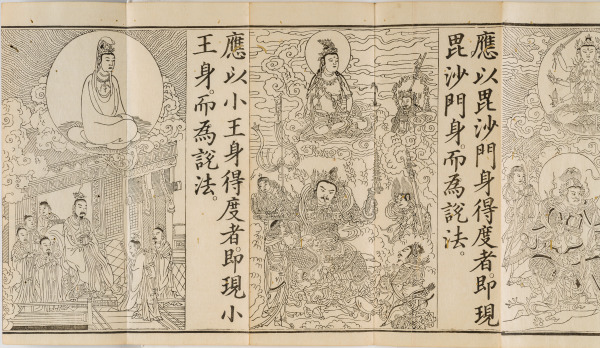 應以毘沙門身得度者。即現
毘沙門身。而為說法。
應以小王身得度者。即現小
王身。而為說法。